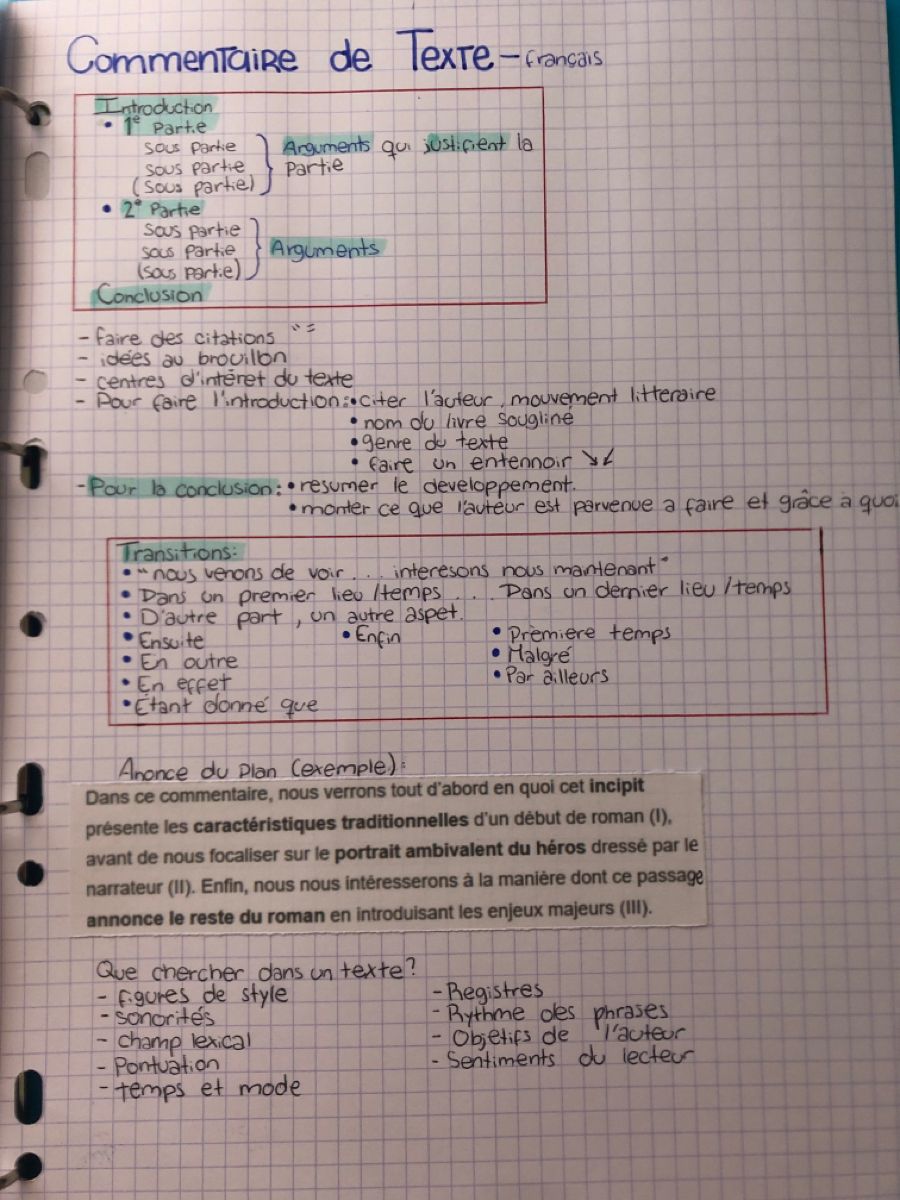 Commentaire de Texte - français
Introduction
• 1e Partie
sous partie
sous partie
(sous partie)
Arguments qui justifient la
Partie
• 2e Partie
sous partie
sous partie
(sous partie)
Arguments
Conclusion
- faire des citations " "
- idées au brouillon
- centres d'intéret du texte
- Pour faire l'introduction: • citer l'auteur, mouvement litteraire
• nom du livre sougliné
• genre du texte
• faire un entennoir ↘↙
- Pour la conclusion: • resumer le developpement.
• monter ce que l'auteur est parvenue a faire et grâce à quoi
Transitions:
• "nous venons de voir... interesons nous maintenant"
• Dans un premier lieu /temps . . . Dans un dernier lieu /temps
• D'autre part, un autre aspet.
• Ensuite • Enfin • Premiere temps
• En outre • Malgré
• En effet • Par ailleurs
• Étant donné que
Anonce du Plan (exemple):
Dans ce commentaire, nous verrons tout d'abord en quoi cet incipit
présente les caractéristiques traditionnelles d'un début de roman (I),
avant de nous focaliser sur le portrait ambivalent du héros dressé par le
narrateur (II). Enfin, nous nous intéresserons à la manière dont ce passage
annonce le reste du roman en introduisant les enjeux majeurs (III).
Que chercher dans un texte?
- figures de style
- sonorités
- champ lexical
- Pontuation
- temps et mode
- Registres
- Rythme des phrases
- Objetifs de l'auteur
- Sentiments du lecteur